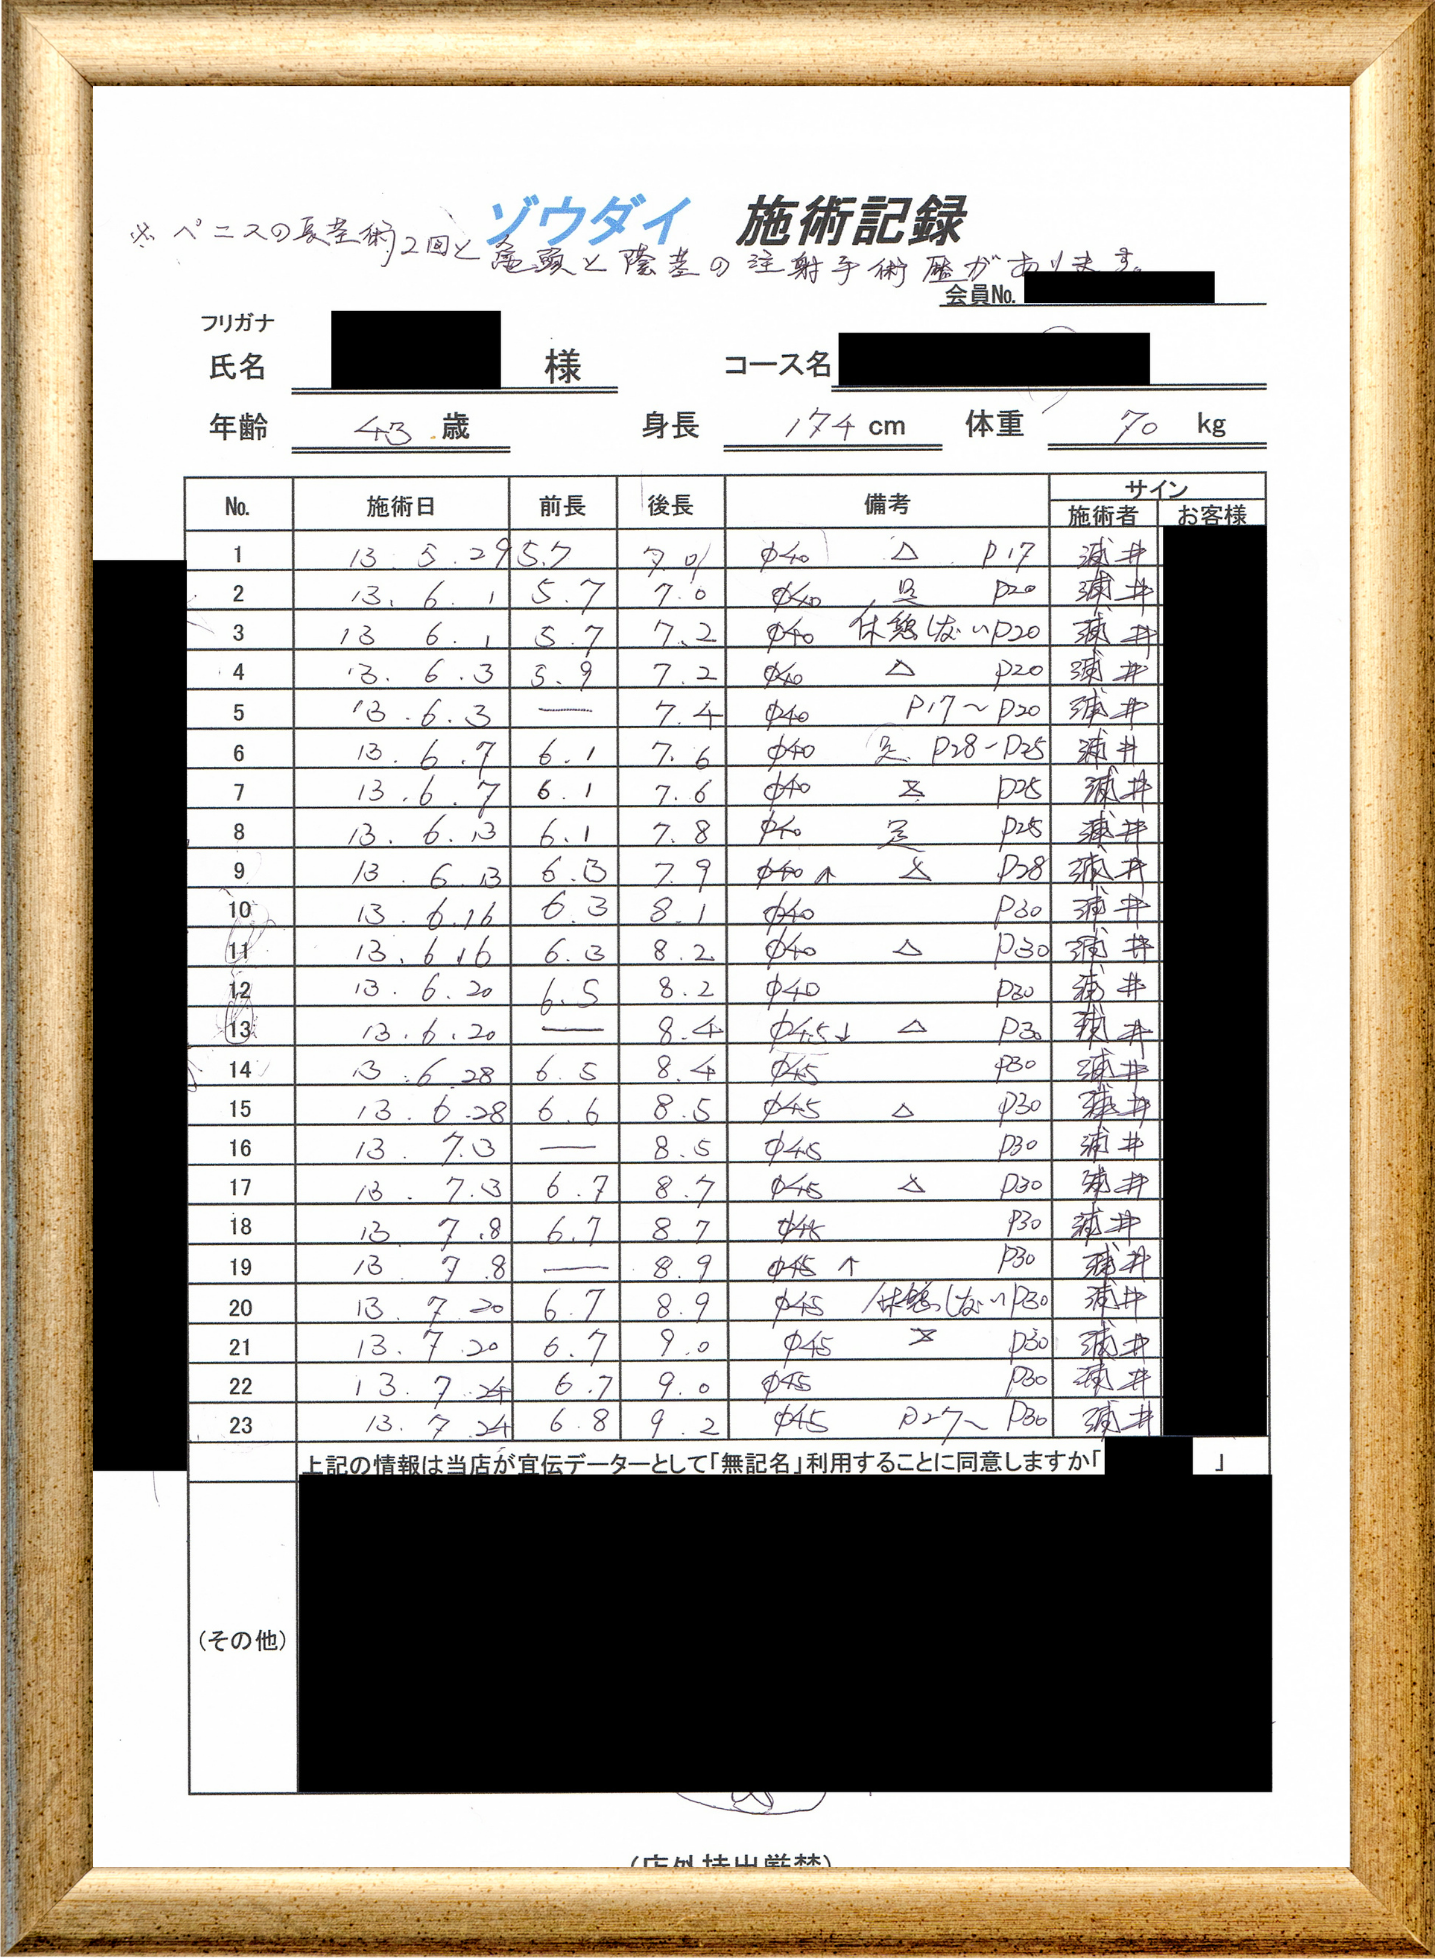 ゾウダイ 施術記録
※ ペニスの長茎術2回と亀頭と陰茎の注射手術歴があります。
会員No.
フリガナ
氏名 様 コース名
年齢 43 歳 身長 174 cm 体重 70 kg
No. 施術日 前長 後長 備考 サイン
施術者 お客様
1 13. 5. 29 5.7 7.0 φ40 △ P17
2 13. 6. 1 5.7 7.0 φ40 P20
3 13 6. 1 5.7 7.2 φ40 休憩しない P20
4 13. 6. 3 5.9 7.2 φ40 △ P20
5 13. 6. 3 — 7.4 φ40 P17〜P20
6 13. 6. 7 6.1 7.6 φ40 P28-P25
7 13. 6. 7 6.1 7.6 φ40 P25
8 13. 6. 13 6.1 7.8 φ40 P25
9 13 6. 13 6.3 7.9 φ40↑ P28
10 13. 6.16 6.3 8.1 φ40 P30
11 13. 6.16 6.3 8.2 φ40 △ P30
12 13. 6. 20 6.5 8.2 φ40 P30
13 13. 6. 20 — 8.4 φ45↓ △ P30
14 13 6.28 6.5 8.4 φ45 P30
15 13. 6.28 6.6 8.5 φ45 △ P30
16 13. 7.3 — 8.5 φ45 P30
17 13. 7.3 6.7 8.7 φ45 △ P30
18 13 7.8 6.7 8.7 φ45 P30
19 13 7.8 — 8.9 φ45 ↑ P30
20 13 7 20 6.7 8.9 φ45 休憩しない P30
21 13. 7.20 6.7 9.0 φ45 P30
22 13. 7.24 6.7 9.0 φ45 P30
23 13. 7.24 6.8 9.2 φ45 P27〜P30
上記の情報は当店が宣伝データーとして「無記名」利用することに同意しますか「 」
(その他)
(店外持出厳禁)